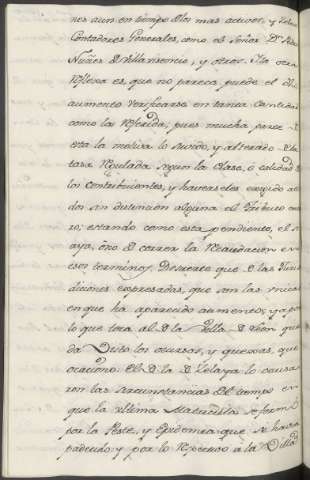 nes aun en tiempo de los mas activos, y Zelosos
Contadores Generales, como el Señor Dn. Pedro
Nuñes de Villavicencio, y otros. Y la otra
Reflexa es, que no parece puede el
aumento verificarse en tanta Cantidad
como la referida; pues mucha parte de
esta la motiva lo subido, y alterado de la
tasa regulada segun la Clase, ó calidad de
los Contribuientes, y haverseles exigido
dos sin distincion alguna el Tributo
ro; estando como esta pendiente, el si
aya, ó no de correr la Recaudacion en
esos terminos. De suerte que de las Juris
dicciones expresadas, que son las unicas
en que ha aparecido aumento, ya por
lo que toca al de la Villa de Leon que
da Visto los recursos, y quexas, que
ocacionó. El de la de Zelaya lo causa
ron las circunstancias del tiempo en
que la ultima Matricula se formó
por la Peste, y Epidemia que se havia
padecido, y por lo respectivo á la Villa